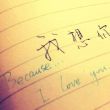 我想你
Because...
I love you.